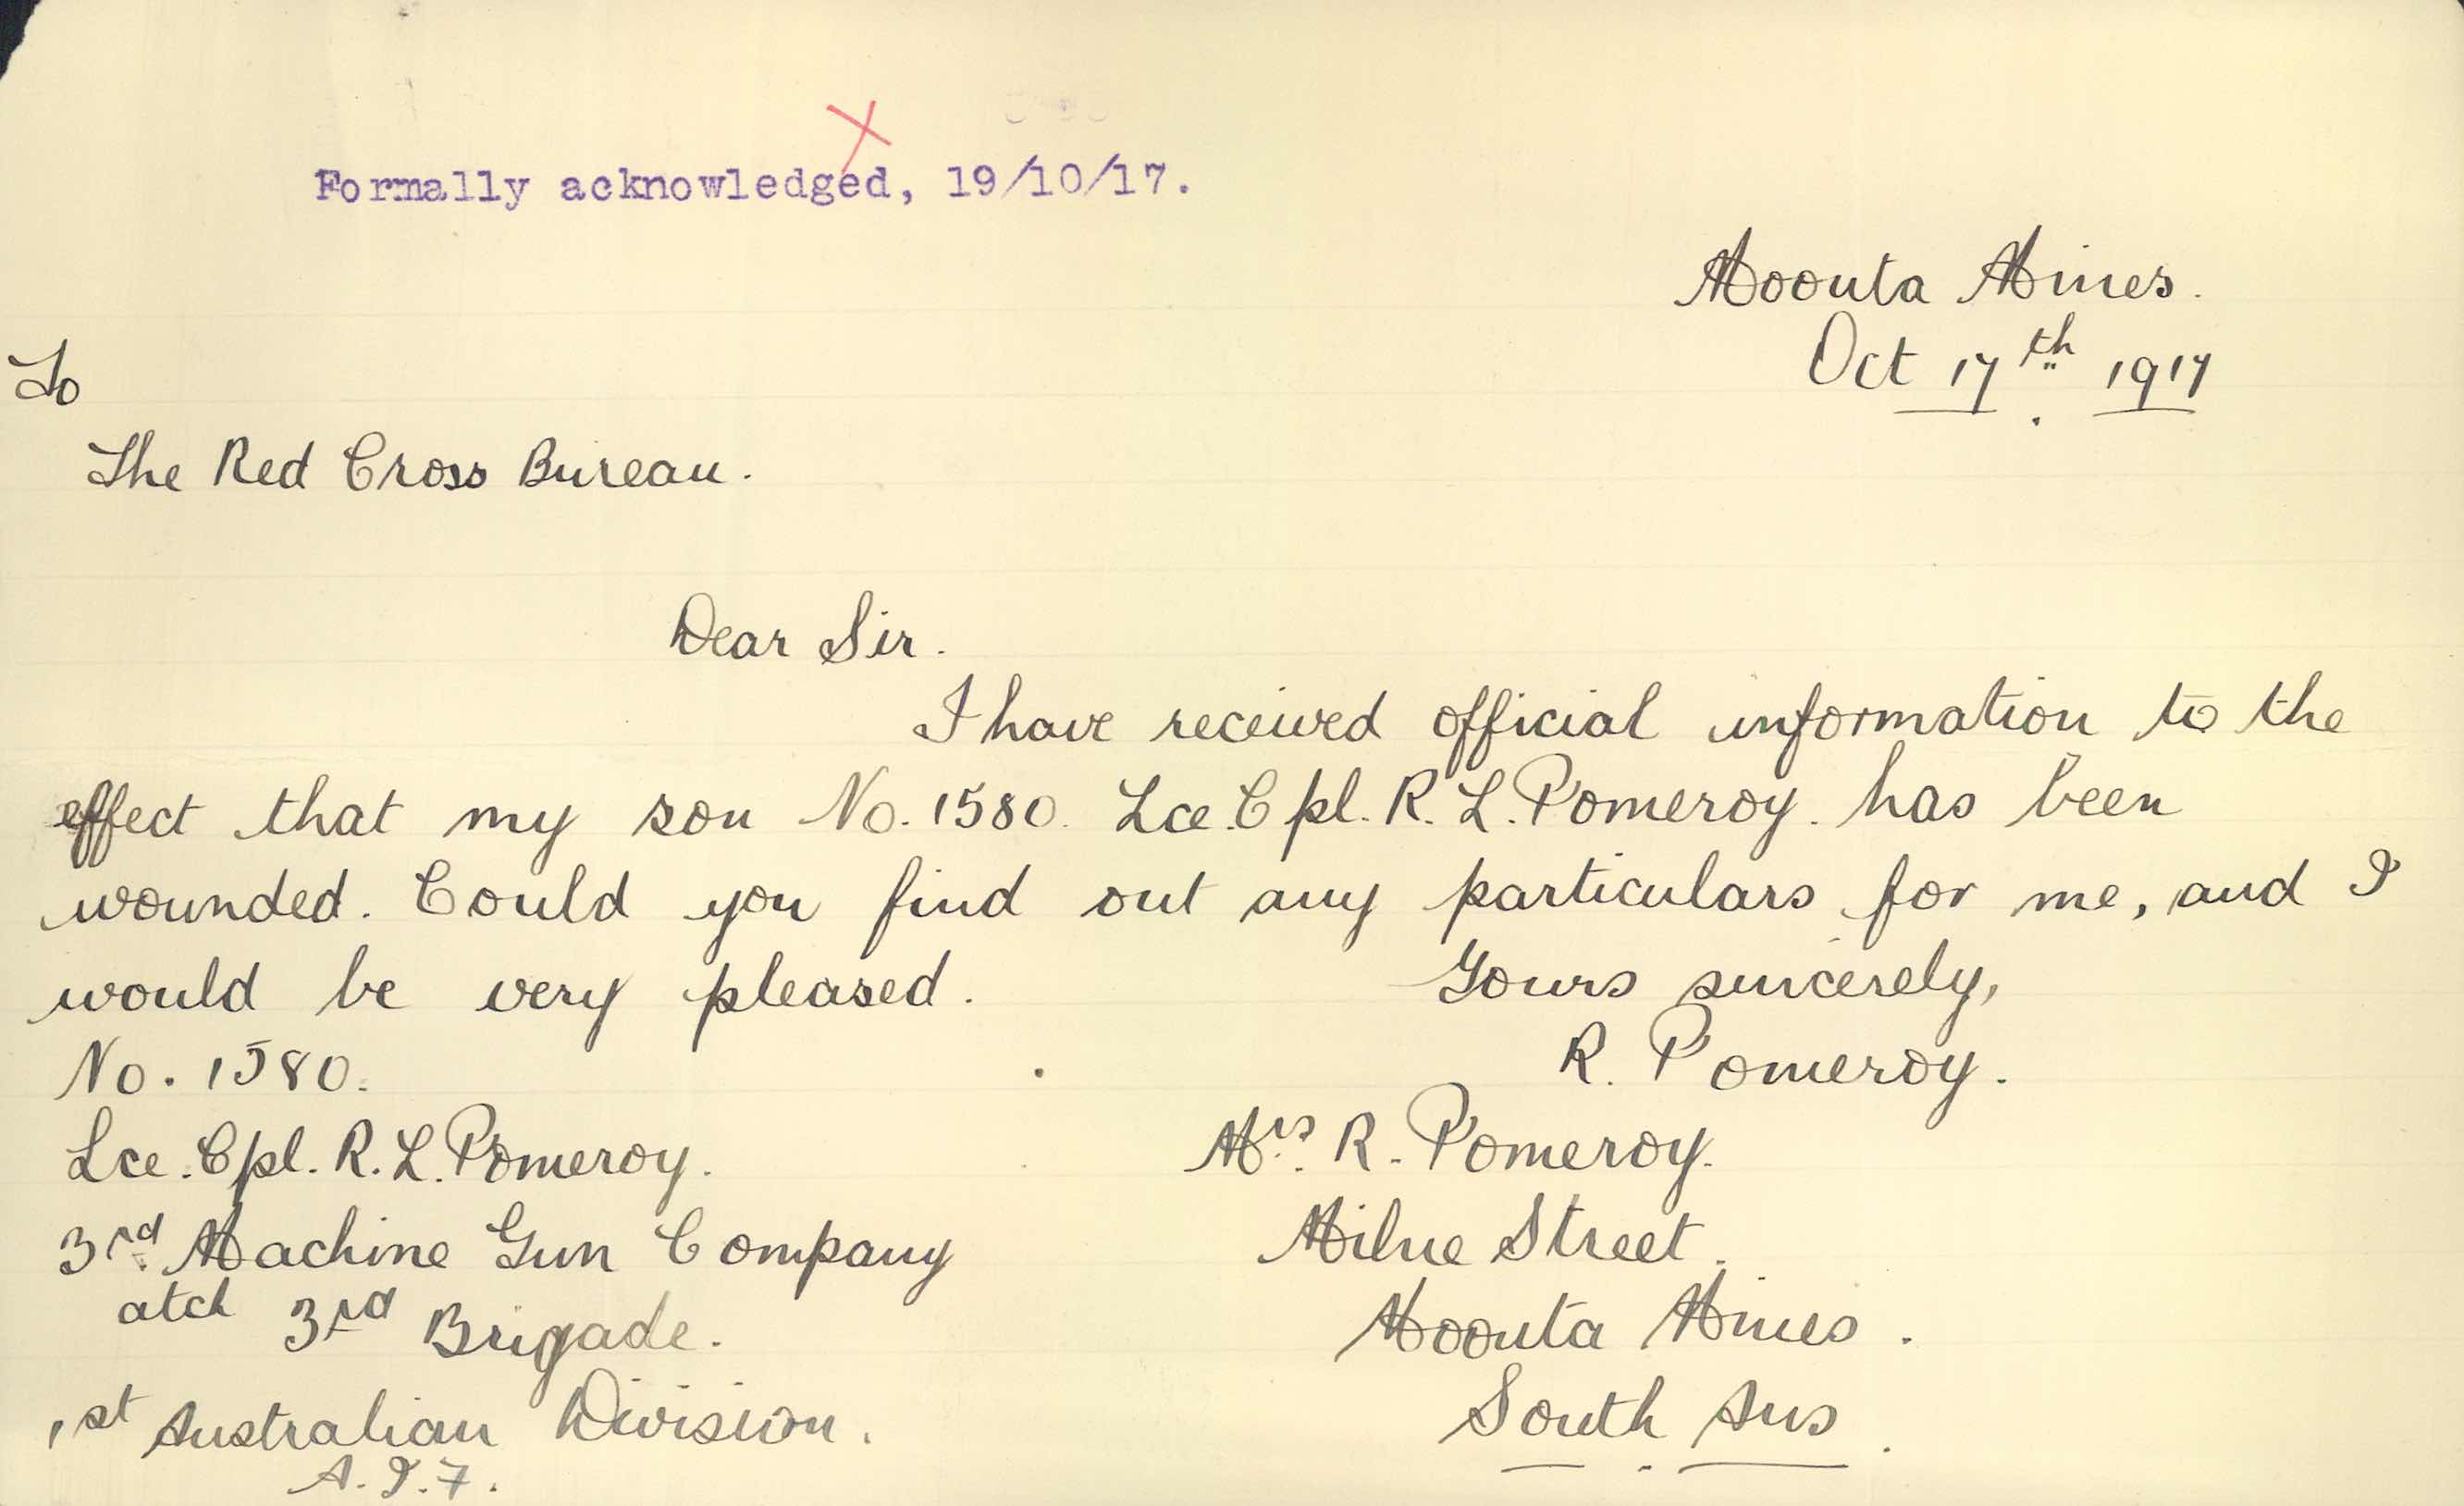 Formally acknowledged, 19/10/17.
Moonta Mines.
Oct 17th 1917
To
The Red Cross Bureau.
Dear Sir.
I have received official information to the
effect that my son No. 1580. Lce. Cpl. R. L. Pomeroy. has been
wounded. Could you find out any particulars for me, and I
would be very pleased.
Yours sincerely,
R. Pomeroy.
No. 1580.
Lce. Cpl. R. L. Pomeroy.
3rd. Machine Gun Company
atch 3rd Brigade.
1st Australian Division.
A. I. F.
Mrs. R. Pomeroy.
Milne Street.
Moonta Mines.
South Aus.